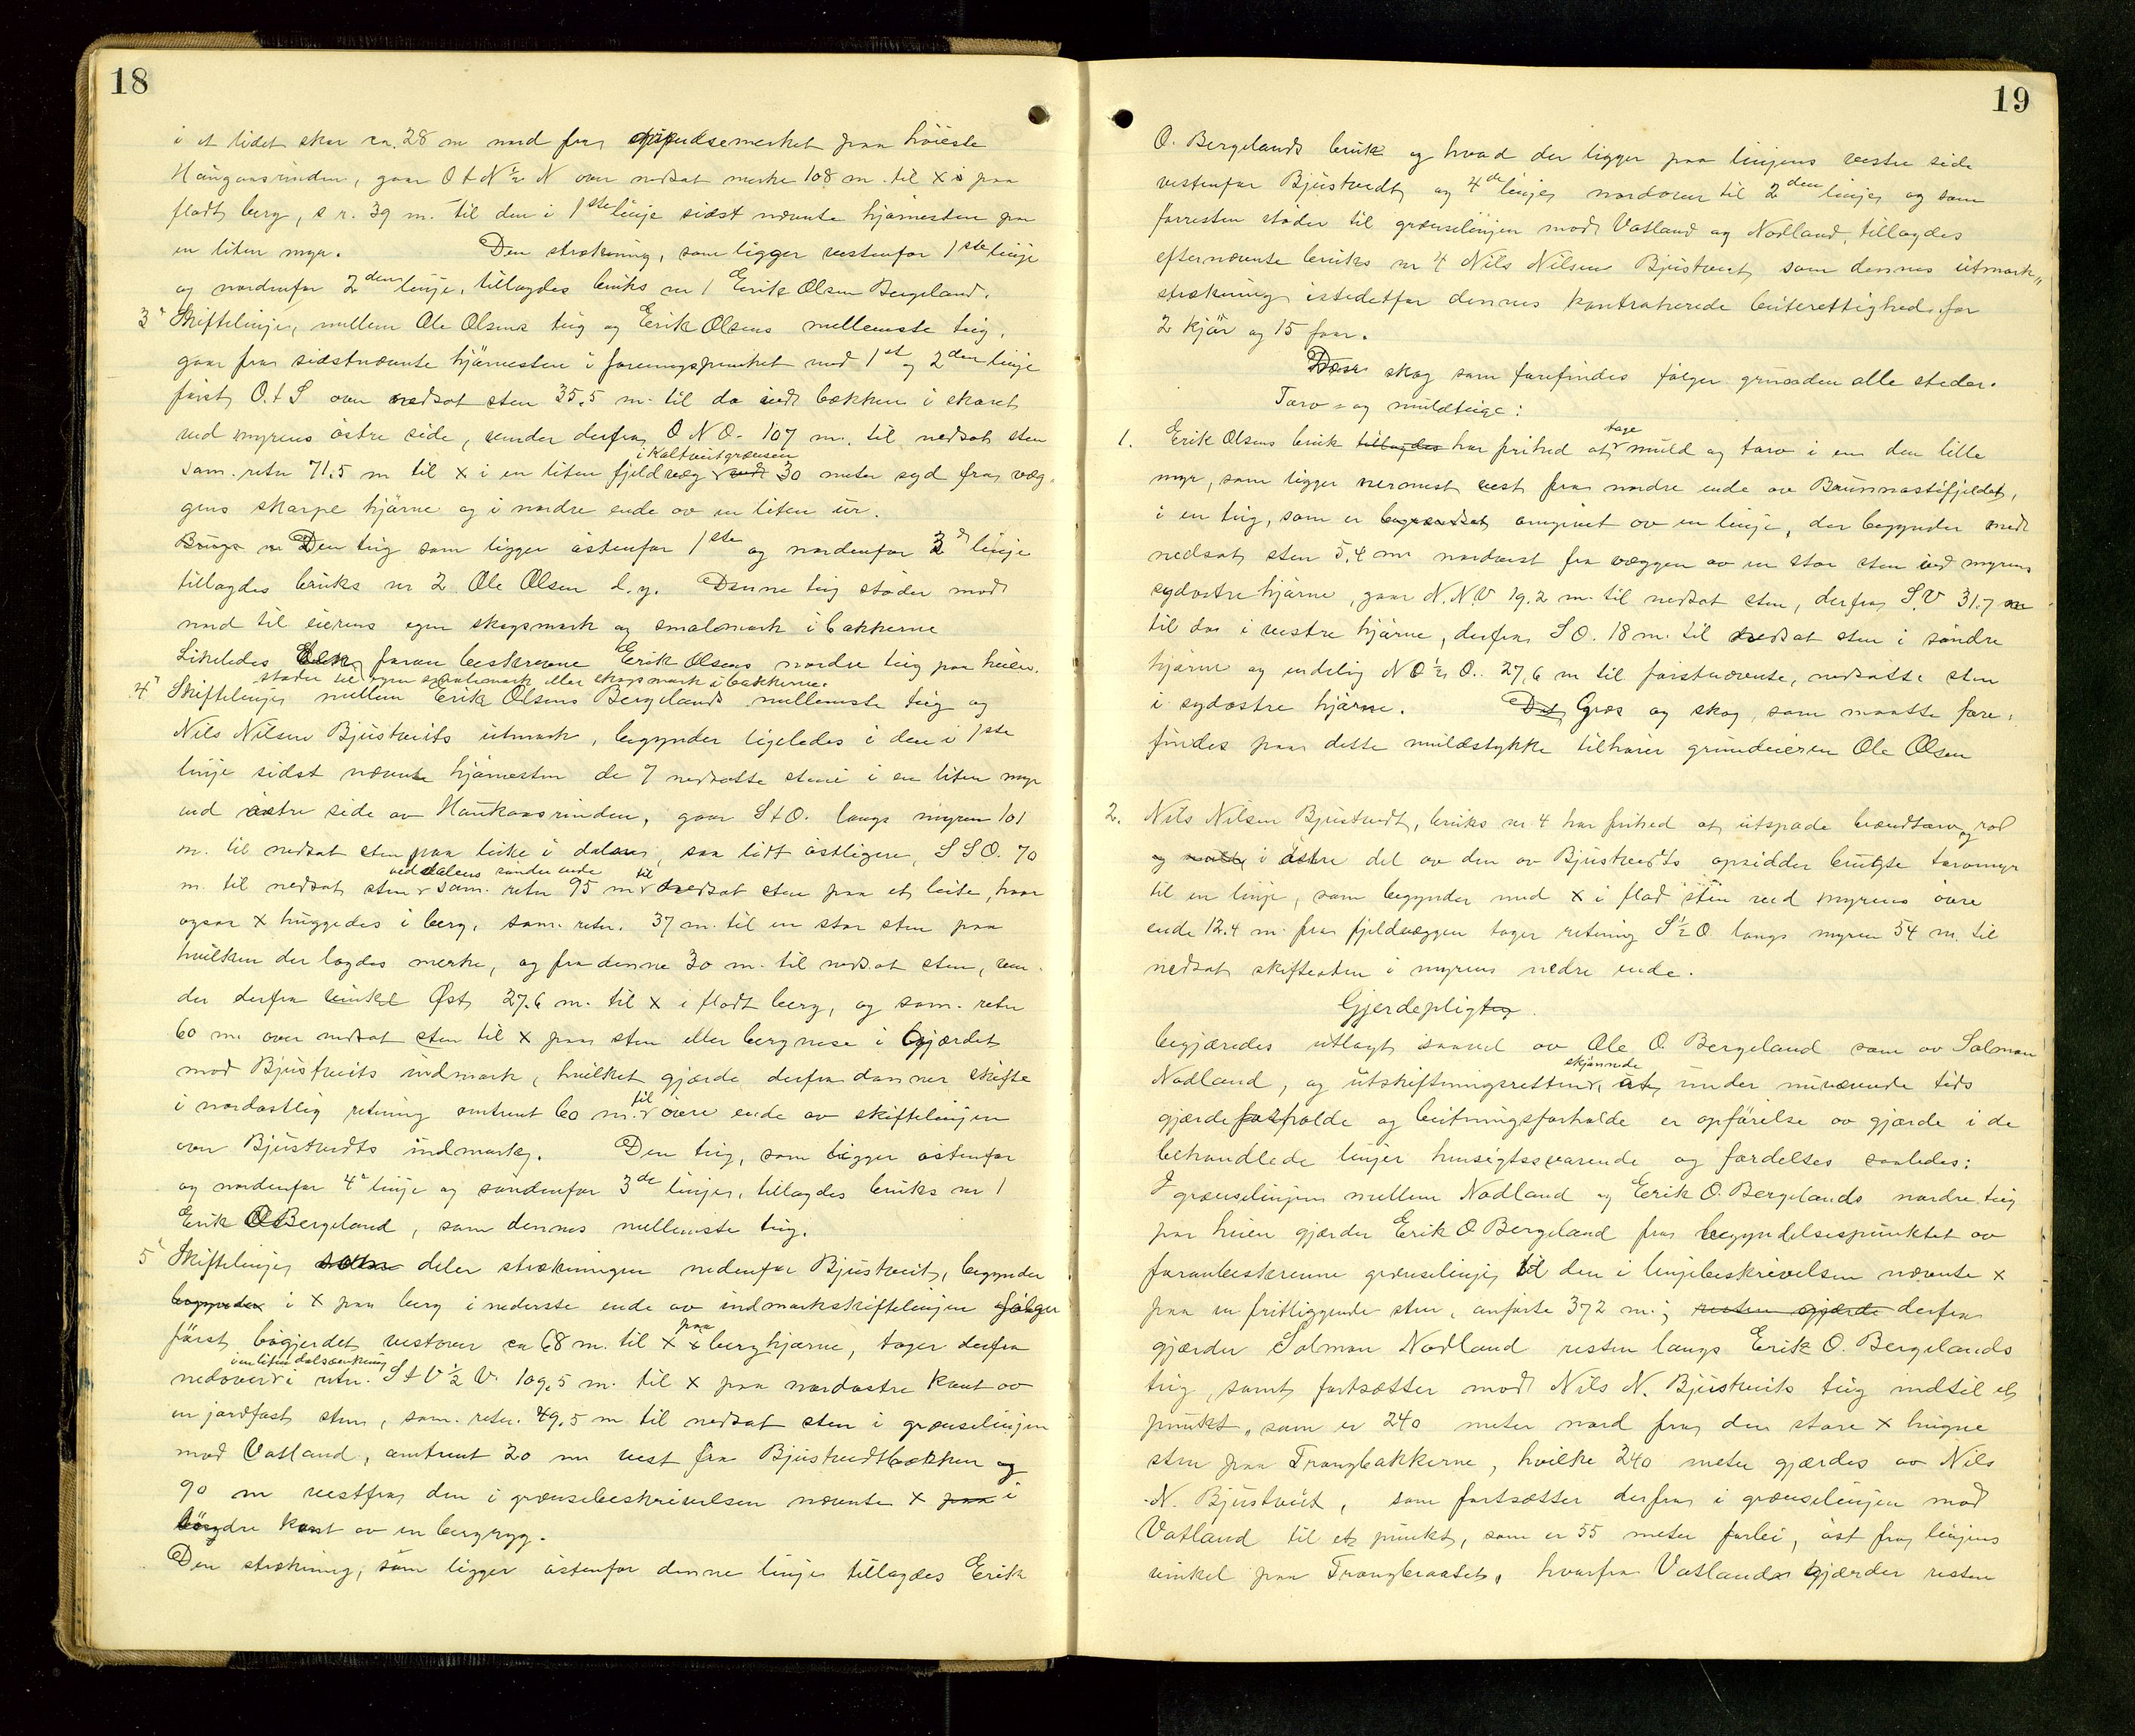 18
i et lidet skar ca. 28 m nord fra grændsemerket paa høieste
Haugaasrinden, gaar O t N ½ N over nedsat merke 108 m. til x i paa
fladt berg, s r. 39 m. til den i 1ste linje sidst nævnte hjørnesten paa
en liten myr. Den strækning, som ligger vestenfor 1ste linje
og nordenfor 2den linje, tillagdes bruks nr 1 Erik Olsen Bergeland.
3' Skiftelinjen mellem Ole Olsens teig og Erik Olsens mellemste teig,
gaar fra sidstnævnte hjørnesten i foreningspunktet med 1ste og 2den linje
først O.t S over nedsat sten 35,5 m. til do ved bækken i skaret
ved myrens østre side, vender derfra O N O. 107 m. til nedsat sten
i Kaltveitgrænsen
sam. retn 71.5 m til x i en liten fjeldvæg ved 30 meter syd fra væg-
gens skarpe hjørne og i nordre ende av en liten ur.
Bruga n Den teig som ligger østenfor 1ste og nordenfor 3d linje
tillagdes bruks nr 2 Ole Olsen d.y. Denne teig støder mod
nord til eierens egen skogsmark og smalemark i bakkerne
Likeledes foran beskrevne Erik Olsens nordre teig paa heien.
støder til egen smalemark eller skogsmark i bakkerne.
4' Skiftelinjen mellem Erik Olsens Bergelands mellemste teig og
Nils Nilsen Bjustveits utmark, begynder ligeledes i den i 1ste
linje sidst nævnte hjørnesten de 7 nedsatte stene i en liten myr
ved østre side av Haukaasrinden, gaar S t O. langs myren 101
m. til nedsat sten paa leite i dalen, saa lidt østligere, S S O. 70
ved dalens søndre ende til
m. til nedsat sten sam. retn 95 m nedsat sten paa et leite, hvor
ogsaa x huggedes i berg, sam. retn. 37 m. til en stor sten paa
hvilken der lagdes merke, og fra denne 30 m. til nedsat sten, ven-
der derfra vinkel Øst 27.6 m. til x i fladt berg, og sam. retn
60 m. over nedsat sten til x paa sten eller bergnese i Gjærdet
mod Bjustveits indmark, hvilket gjærde derfra danner skifte
i nordøstlig retning omtrent 60 m. til øvre ende av skiftelinjen
over Bjustvedts indmark. Den teig, som ligger østenfor
og nordenfor 4' linje og søndenfor 3de linjen, tillagdes bruks nr 1
Erik O Bergeland, som dennes mellemste teig.
5' Skiftelinjen som deler strækningen nedenfor Bjustveit, begynder
begynder i x paa berg i nederste ende av indmarkskiftelinjen følger
først bøgjerdet vestover ca 68 m. til x paa berghjørne, tager derfra
i en liten dalsænkning
nedover i retn. S t V ½ V. 109,5 m. til x paa nordøstre kant av
en jordfast sten, sam. retn. 49,5 m til nedsat sten i grænselinjen
mod Vatland, omtrent 20 m vest fra Bjustvedtbækken og
90 m vestfra den i grænsebeskrivelsen nævnte x paa i
søndre kant av en bergryg.
Den strækning, som ligger østenfor denne linje tillagdes Erik
19
O. Bergelands bruk og hvad der ligger paa linjens vestre side
vestenfor Bjustvedt og 4de linjen nordover til 2den linjen og som
forresten støder til grænselinjen mod Vatland og Nodland, tillagdes
efternævnte bruks nr 4 Nils Nilsen Bjustveit som dennes utmark„
strækning istedetfor dennes kontraherede beiterettighed for
2 kjør og 15 faar.
Den skog som forefindes følger grunden alle steder.
Torv- og muldteige:
1. Erik Olsens bruk tillagdes har frihed at tage muld og torv i en den lille
myr, som ligger nærmest vest fra nordre ende av Brunnastifjeldet,
i en teig, som er begrændset omgivet av en linje, der begynder med
nedsat sten 5,4 m nordvest fra væggen av en stor sten ved myrens
sydøstre hjørne, gaar N.N.V 19.2 m. til nedsat sten, derfra S.V 31.7 m
til do i vestre hjørne, derfra S O. 18 m. til nedsat sten i søndre
hjørne og endelig N O ½ O. 27,6 m til førstnævnte, nedsatte sten
i sydøstre hjørne. Det Græs og skog, som maatte fore-
findes paa dette muldstykke tilhører grundeieren Ole Olsen
2. Nils Nilsen Bjustvedt, bruks nr 4 har frihed at utspade brændtorv og rod
og muld i østre del av den av Bjustvedts opsidder brugte torvmyr
til en linje, som begynder med x i flad sten ved myrens øvre
ende 12.4 m. fra fjeldvæggen tager retning S ½ O. langs myren 54 m. til
nedsat skiftesten i myrens nedre ende.
Gjerdepligten.
begjæredes utlagt saavel av Ole O. Bergeland som av Salmon
skjønnede
Nodland, og utskiftningsretten at under nuværende tids
gjærdeforholde og beitningsforholde er opførelse av gjærde i de
behandlede linjer hensigtssvarende og fordeltes saaledes:
I grænselinjen mellem Nodland og Erik O. Bergelands nordre teig
paa heien gjærder Erik O Bergeland fra begyndelsespunktet av
foranbeskrevne grænselinje til den i linjebeskrivelsen nævnte x
paa en fritliggende sten, anførte 372 m.; resten gjærde derfra
gjærder Salmon Nodland resten langs Erik O. Bergelands
teig samt fortsætter mod Nils N. Bjustveits teig indtil et
punkt, som er 240 meter nord fra den store x hugne
sten paa Trangbakkerne, hvilke 240 meter gjærdes av Nils
N. Bjustveit, som fortsætter derfra i grænselinjen mod
Vatland til et punkt, som er 55 meter forbi, øst fra linjens
vinkel paa Trangbraatet, hvorfra Vatland gjærder resten